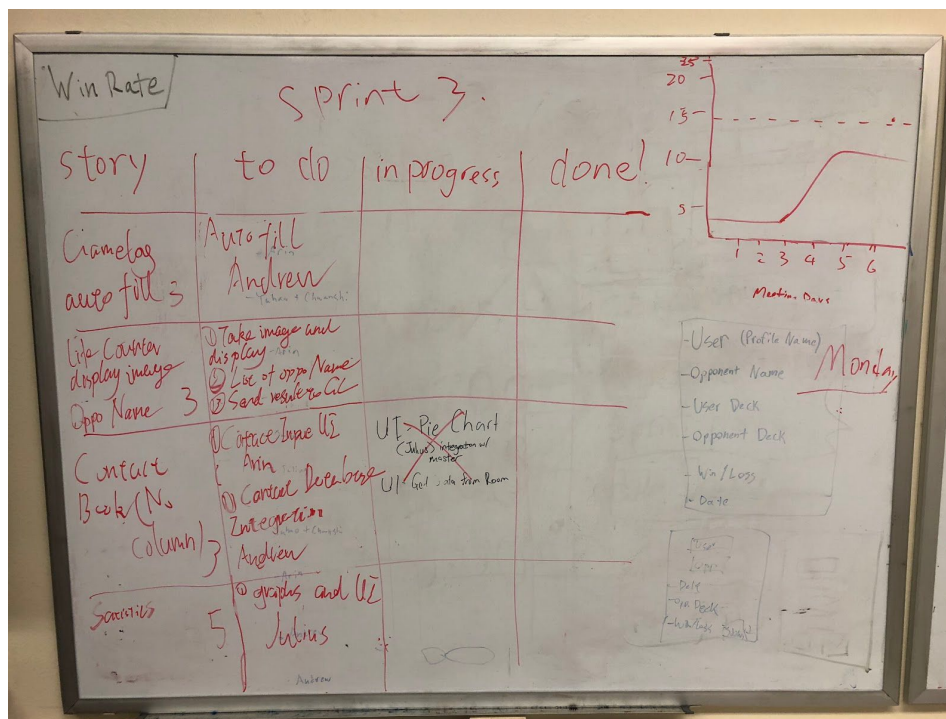 Win Rate
Sprint 3.
story
to do
in progress
done!
Gametag
auto fill 3
Auto fill
Andrew
Life Counter
display image
Oppo Name 3
① Take image and
display
② List of oppo Name
③ Send result to GL
Contact
Book (No
Column) 3
Arin
Contact Database
Integration
Andrew
UI - Pie Chart
(Julius) integration w/
master
UI - Get data from Room
5
① graphs and UI
Julius
Andrew
20
15
10
5
1 2 3 4 5 6
Days
- User (Profile Name)
- Opponent Name
- User Deck
- Opponent Deck
- Win / Loss
- Date
Monday
- Date